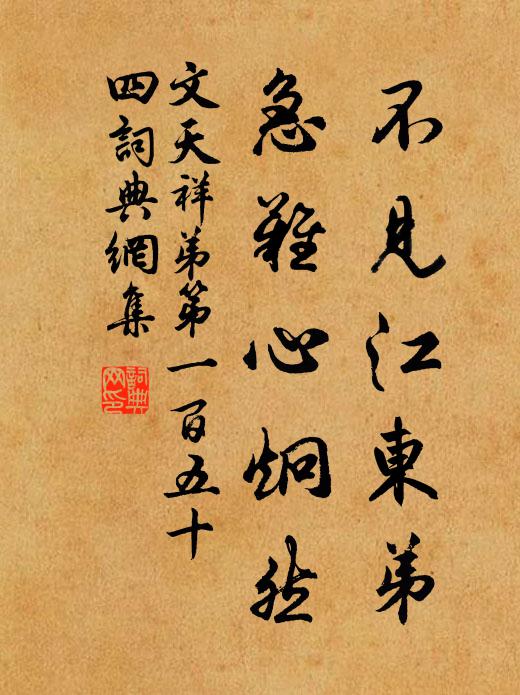 不見江東弟
急難心炯然
文天祥弟第一百五十
四詞典網集
詞典
网印